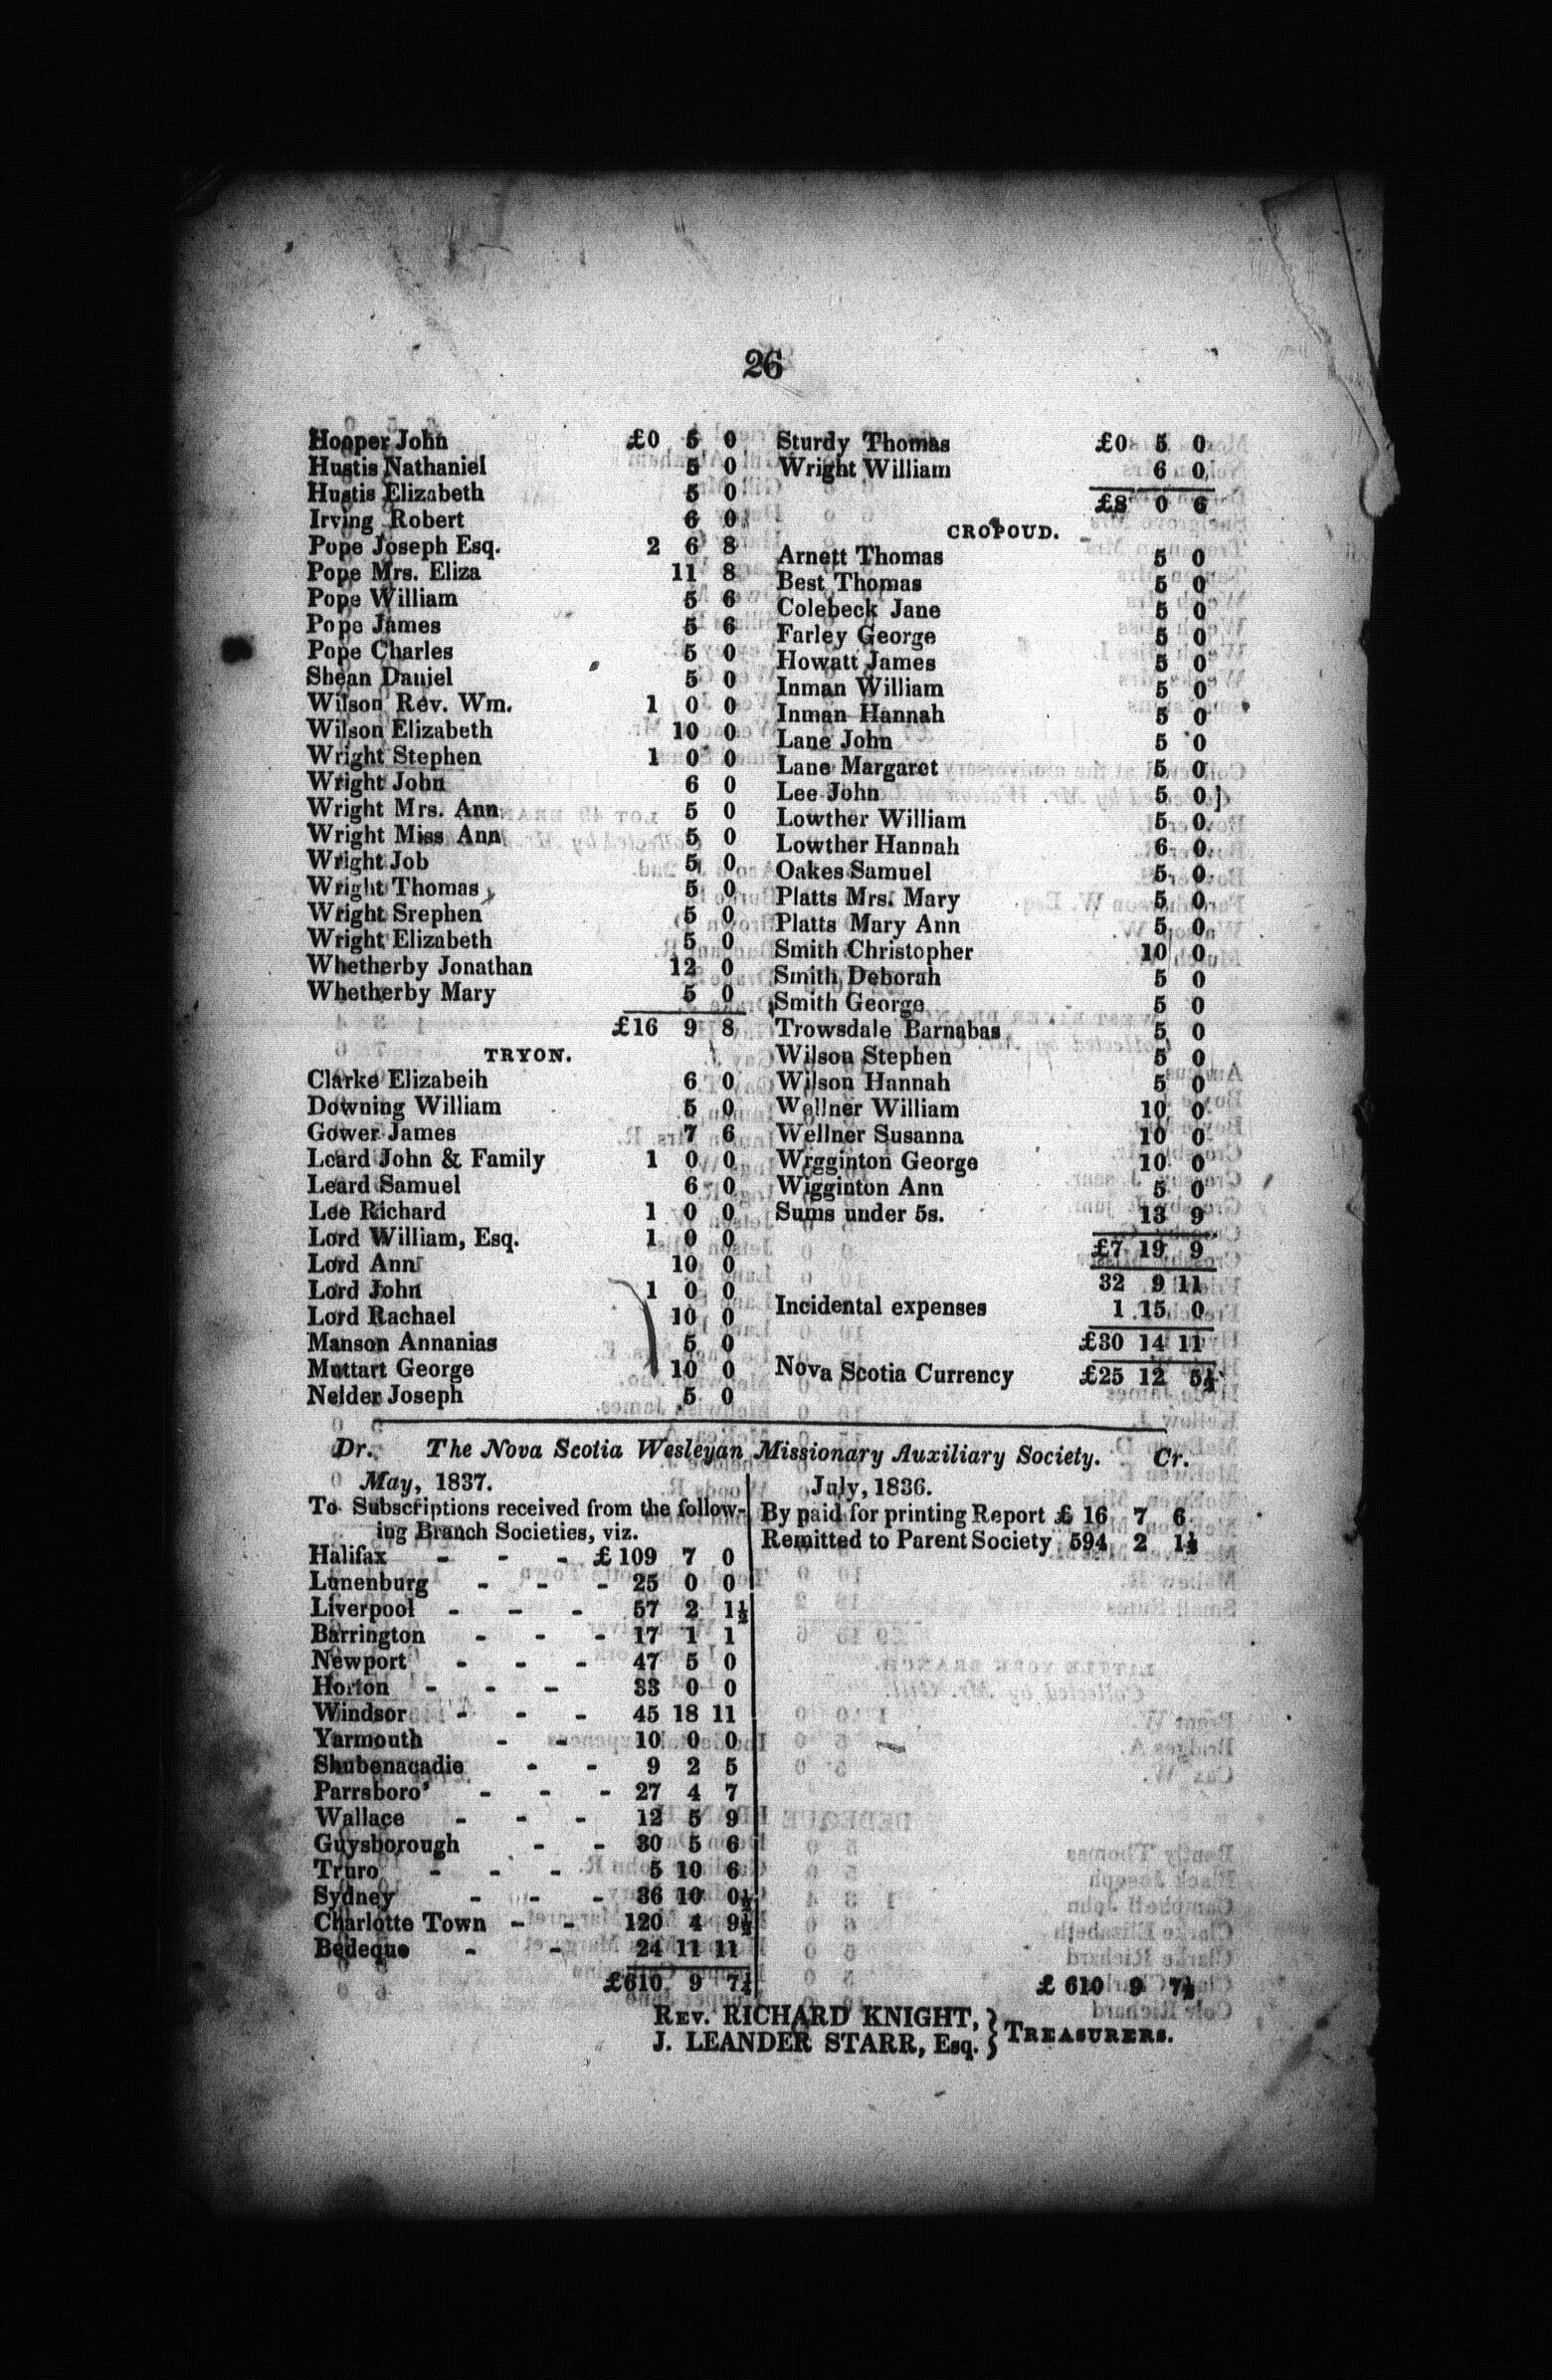 26
Hooper John £0 5 0
Hustis Nathaniel 5 0
Hustis Elizabeth 5 0
Irving Robert 6 0
Pope Joseph Esq. 2 6 8
Pope Mrs. Eliza 11 8
Pope William 5 6
Pope James 5 6
Pope Charles 5 0
Shean Daniel 5 0
Wilson Rev. Wm. 1 0 0
Wilson Elizabeth 10 0
Wright Stephen 1 0 0
Wright John 6 0
Wright Mrs. Ann 5 0
Wright Miss Ann 5 0
Wright Job 5 0
Wright Thomas 5 0
Wright Srephen 5 0
Wright Elizabeth 5 0
Whetherby Jonathan 12 0
Whetherby Mary 5 0
£16 9 8
TRYON.
Clarke Elizabeih 6 0
Downing William 5 0
Gower James 7 6
Leard John & Family 1 0 0
Leard Samuel 6 0
Lee Richard 1 0 0
Lord William, Esq. 1 0 0
Lord Ann 10 0
Lord John 1 0 0
Lord Rachael 10 0
Manson Annanias 5 0
Muttart George 10 0
Nelder Joseph 5 0
Sturdy Thomas £0 5 0
Wright William 6 0
£8 0 6
CROPOUD.
Arnett Thomas 5 0
Best Thomas 5 0
Colebeck Jane 5 0
Farley George 5 0
Howatt James 5 0
Inman William 5 0
Inman Hannah 5 0
Lane John 5 0
Lane Margaret 5 0
Lee John 5 0
Lowther William 5 0
Lowther Hannah 6 0
Oakes Samuel 5 0
Platts Mrs. Mary 5 0
Platts Mary Ann 5 0
Smith Christopher 10 0
Smith Deborah 5 0
Smith George 5 0
Trowsdale Barnabas 5 0
Wilson Stephen 5 0
Wilson Hannah 5 0
Wellner William 10 0
Wellner Susanna 10 0
Wrgginton George 10 0
Wigginton Ann 5 0
Sums under 5s. 13 9
£7 19 9
32 9 11
Incidental expenses 1 15 0
£30 14 11
Nova Scotia Currency £25 12 5¼
Dr. The Nova Scotia Wesleyan Missionary Auxiliary Society. Cr.
May, 1837.
To Subscriptions received from the follow-
ing Branch Societies, viz.
Halifax - - - £ 109 7 0
Lunenburg - - - 25 0 0
Liverpool - - - 57 2 1½
Barrington - - - 17 1 1
Newport - - - 47 5 0
Horton - - - 33 0 0
Windsor - - - 45 18 11
Yarmouth - - 10 0 0
Shubenacadie - - 9 2 5
Parrsboro' - - - 27 4 7
Wallace - - - 12 5 9
Guysborough - - 30 5 6
Truro - - - 5 10 6
Sydney - - - 36 10 0½
Charlotte Town - - 120 4 9½
Bedeque - - 24 11 11
£610 9 7½
July, 1836.
By paid for printing Report £ 16 7 6
Remitted to Parent Society 594 2 1½
£ 610 9 7½
REV. RICHARD KNIGHT,
J. LEANDER STARR, Esq. } TREASURERS.